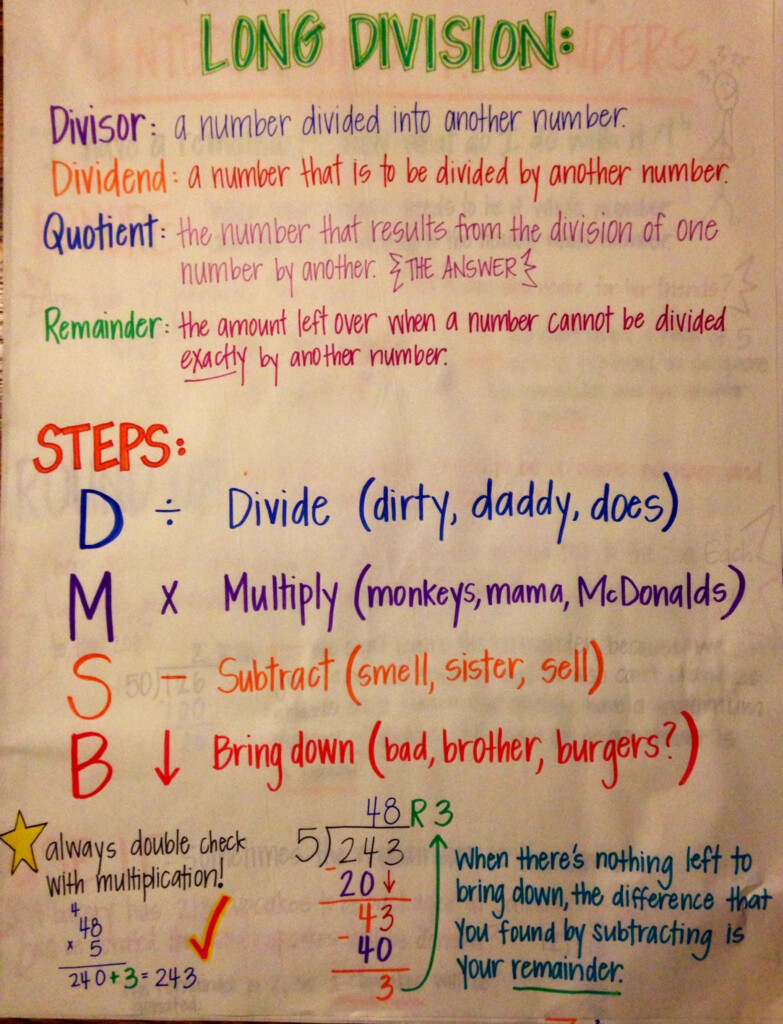 LONG DIVISION:
Divisor: a number divided into another number.
Dividend: a number that is to be divided by another number.
Quotient: the number that results from the division of one
number by another. {THE ANSWER}
Remainder: the amount left over when a number cannot be divided
exactly by another number.
STEPS:
D ÷ Divide (dirty, daddy, does)
M x Multiply (monkeys, mama, McDonalds)
S - Subtract (smell, sister, sell)
B ↓ Bring down (bad, brother, burgers?)
always double check
with multiplication!
4
48
x 5
240+3=243
48 R 3
5)243
-20↓
43
-40
3
When there's nothing left to
bring down, the difference that
you found by subtracting is
your remainder.